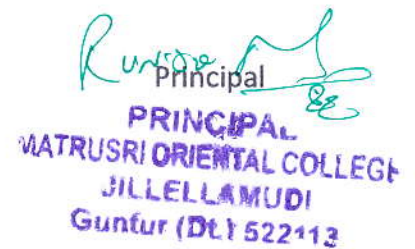 Principal
PRINCIPAL
MATRUSRI ORIENTAL COLLEGE
JILLELLAMUDI
Guntur (Dt.) 522113